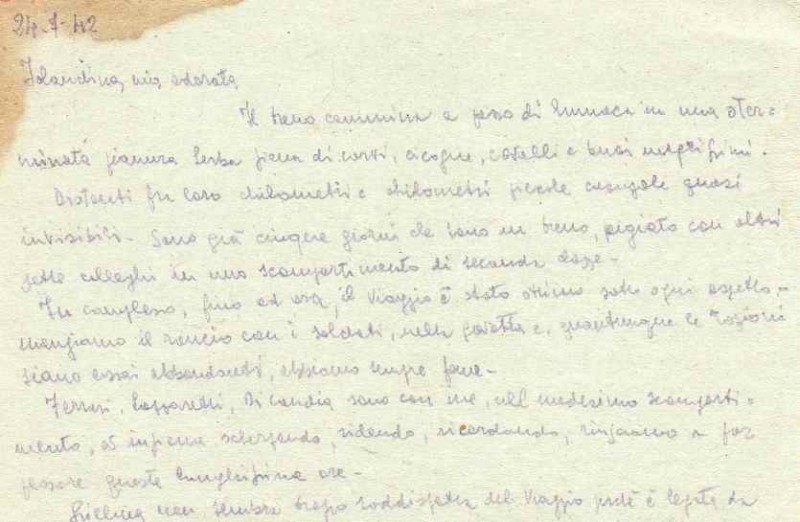 24-7-42
Iolandina, mia adorata
Il treno cammina a passo di lumaca in una ster-
minata pianura serba piena di corvi, cicogne, cavalli e buoi magrissimi.
Distacati fra loro chilometri e chilometri piccole casupole quasi
invisibili. Sono già cinque giorni che sono in treno, pigiato con altri
sette colleghi in uno scompartimento di seconda classe.
In complesso, fino ad ora, il viaggio è stato ottimo sotto ogni aspetto.
mangiamo il rancio con i soldati, nella gavetta e, quantunque le razioni
siano assai abbondanti, abbiamo sempre fame.
Ferrari, Di Candia sono con me, nel medesimo scomparti-
mento, ed insieme scherzando, ridendo, ricordando, riusciamo a far
passare queste lunghissime ore.
non sembra troppo soddisfatta del viaggio perchè è legata da